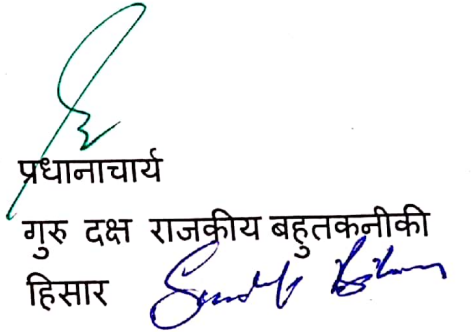 प्रधानाचार्य
गुरु दक्ष राजकीय बहुतकनीकी
हिसार